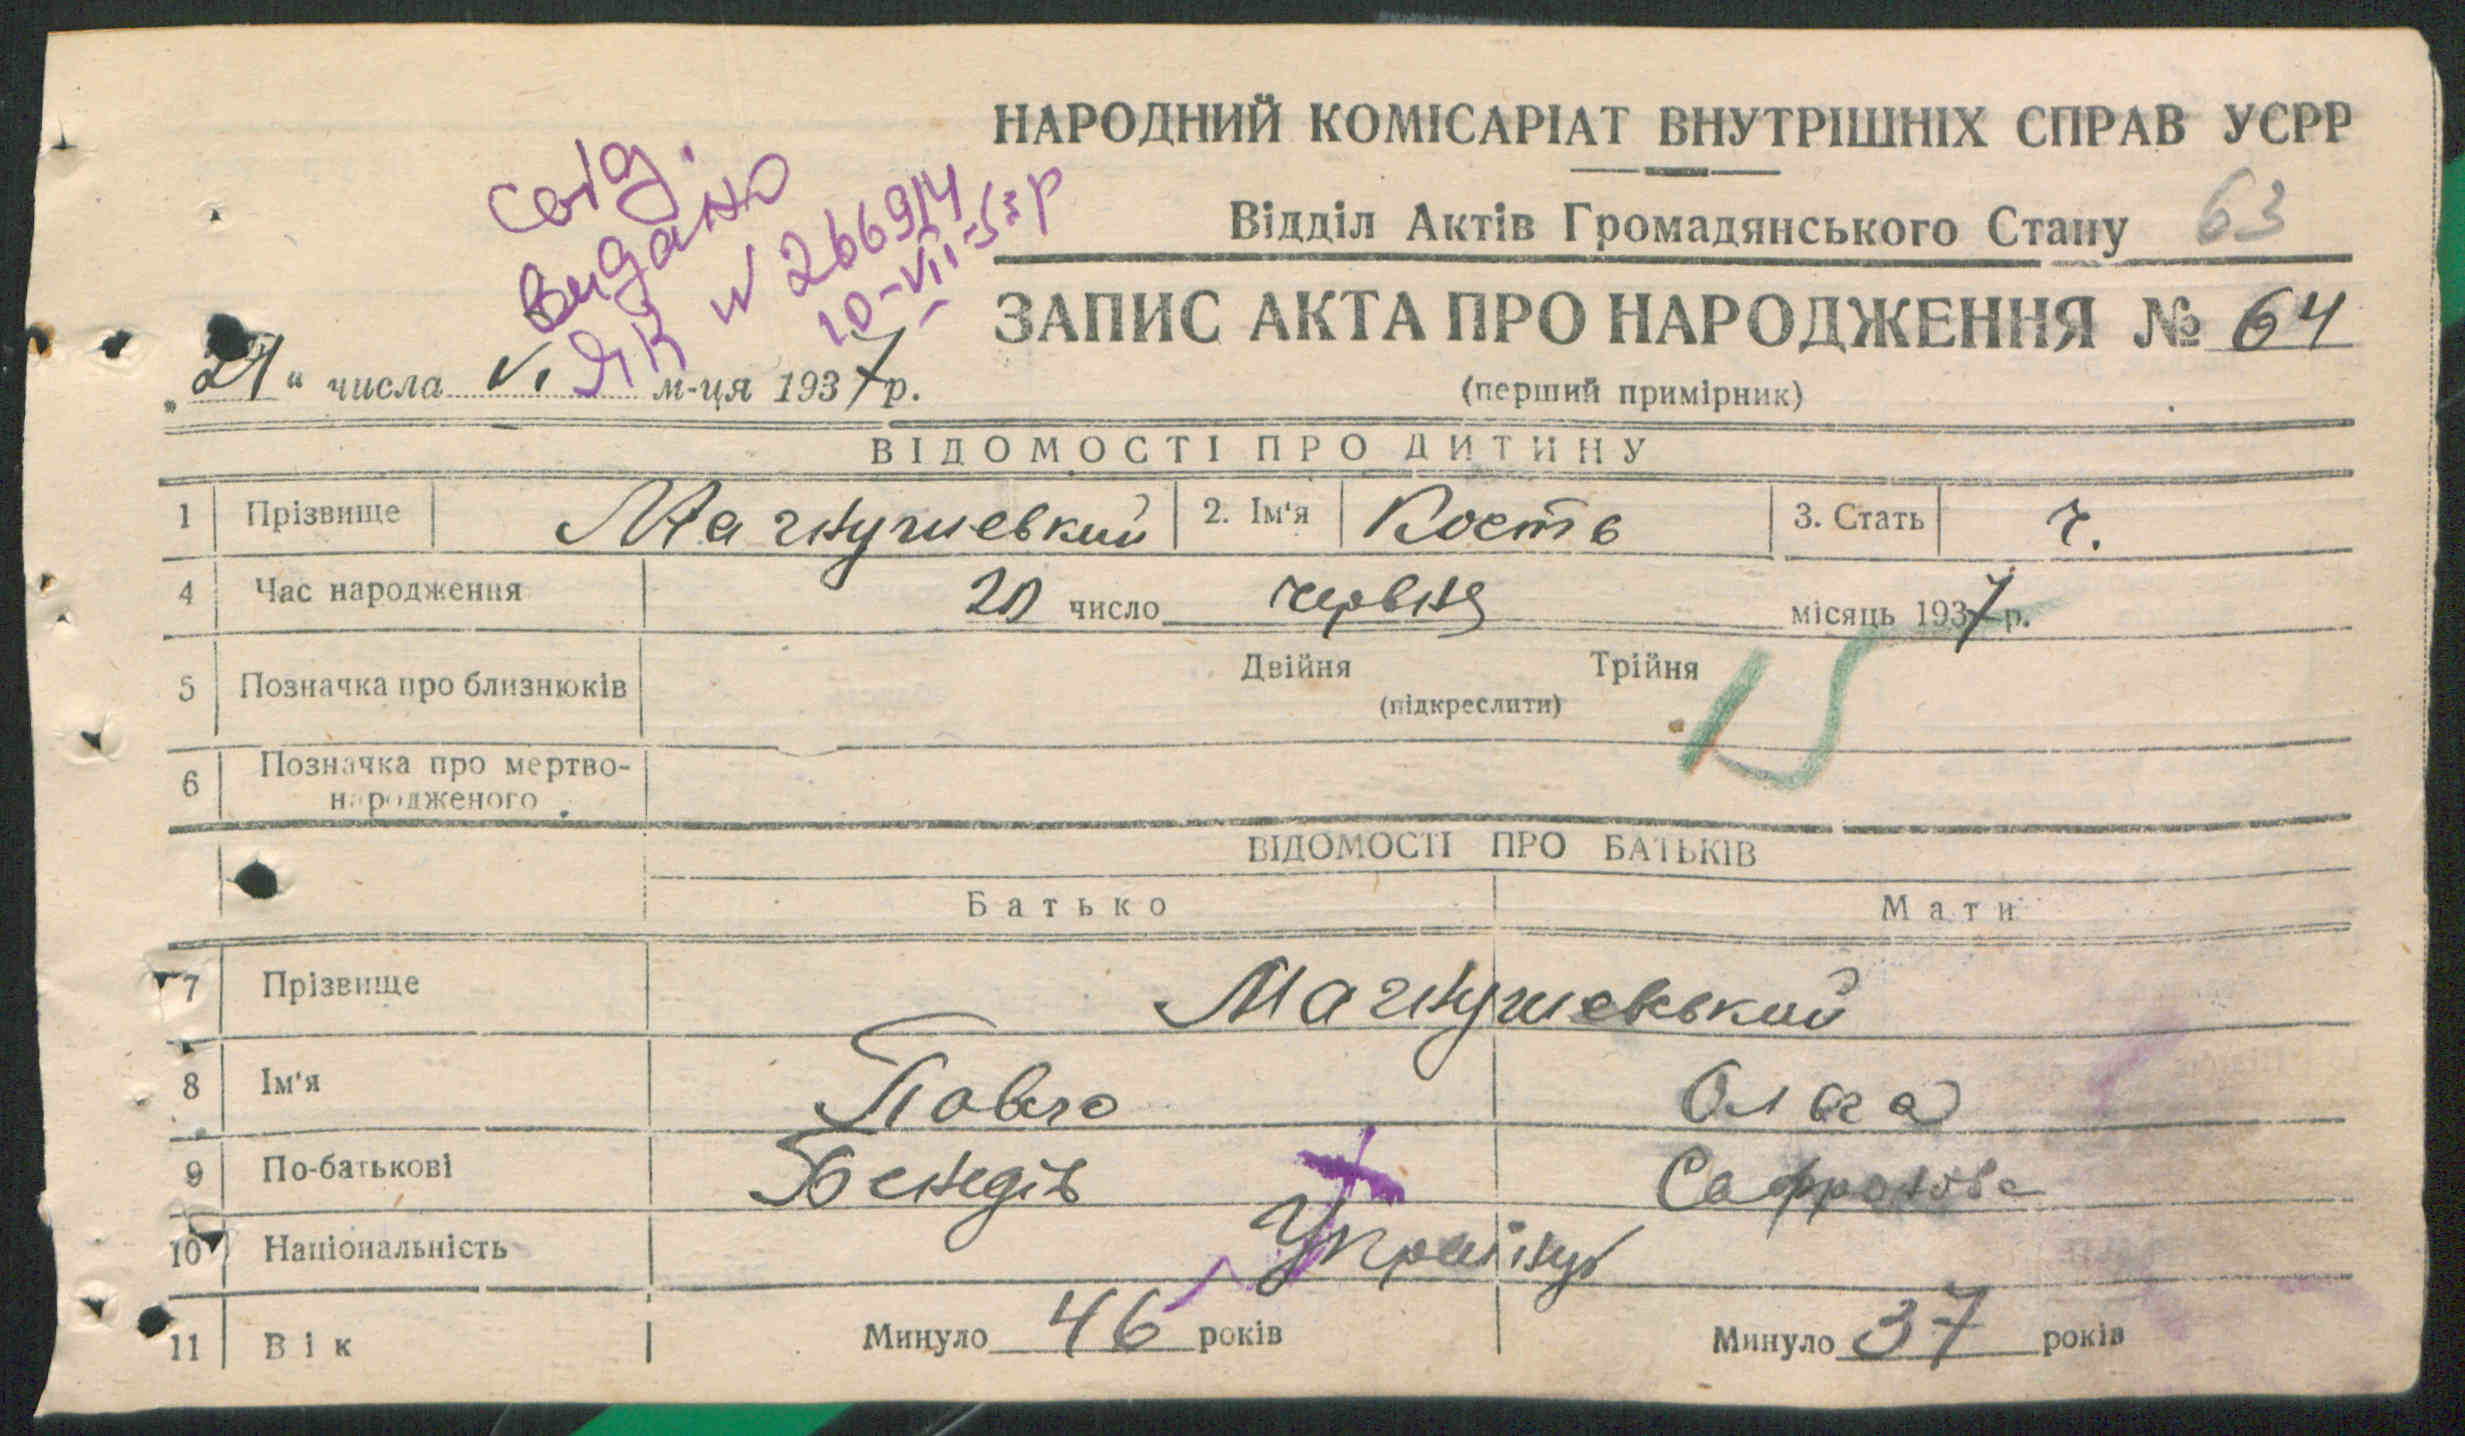 НАРОДНИЙ КОМІСАРІАТ ВНУТРІШНІХ СПРАВ УСРР
Відділ Актів Громадянського Стану 63
ЗАПИС АКТА ПРО НАРОДЖЕННЯ № 64
(перший примірник)
видано
ЯК № 266914
„21“ числа VI м-ця 1937 р.
ВІДОМОСТІ ПРО ДИТИНУ
1 Прізвище 2. Ім'я Кость 3. Стать ч.
4 Час народження 20 число червня місяць 1937 р.
5 Позначка про близнюків Двійня Трійня
(підкреслити)
15
6 Позначка про мертво-
народженого
ВІДОМОСТІ ПРО БАТЬКІВ
Батько Мати
7 Прізвище
8 Ім'я Павло Ольга
9 По-батькові
10 Національність
11 Вік Минуло 46 років Минуло 37 років